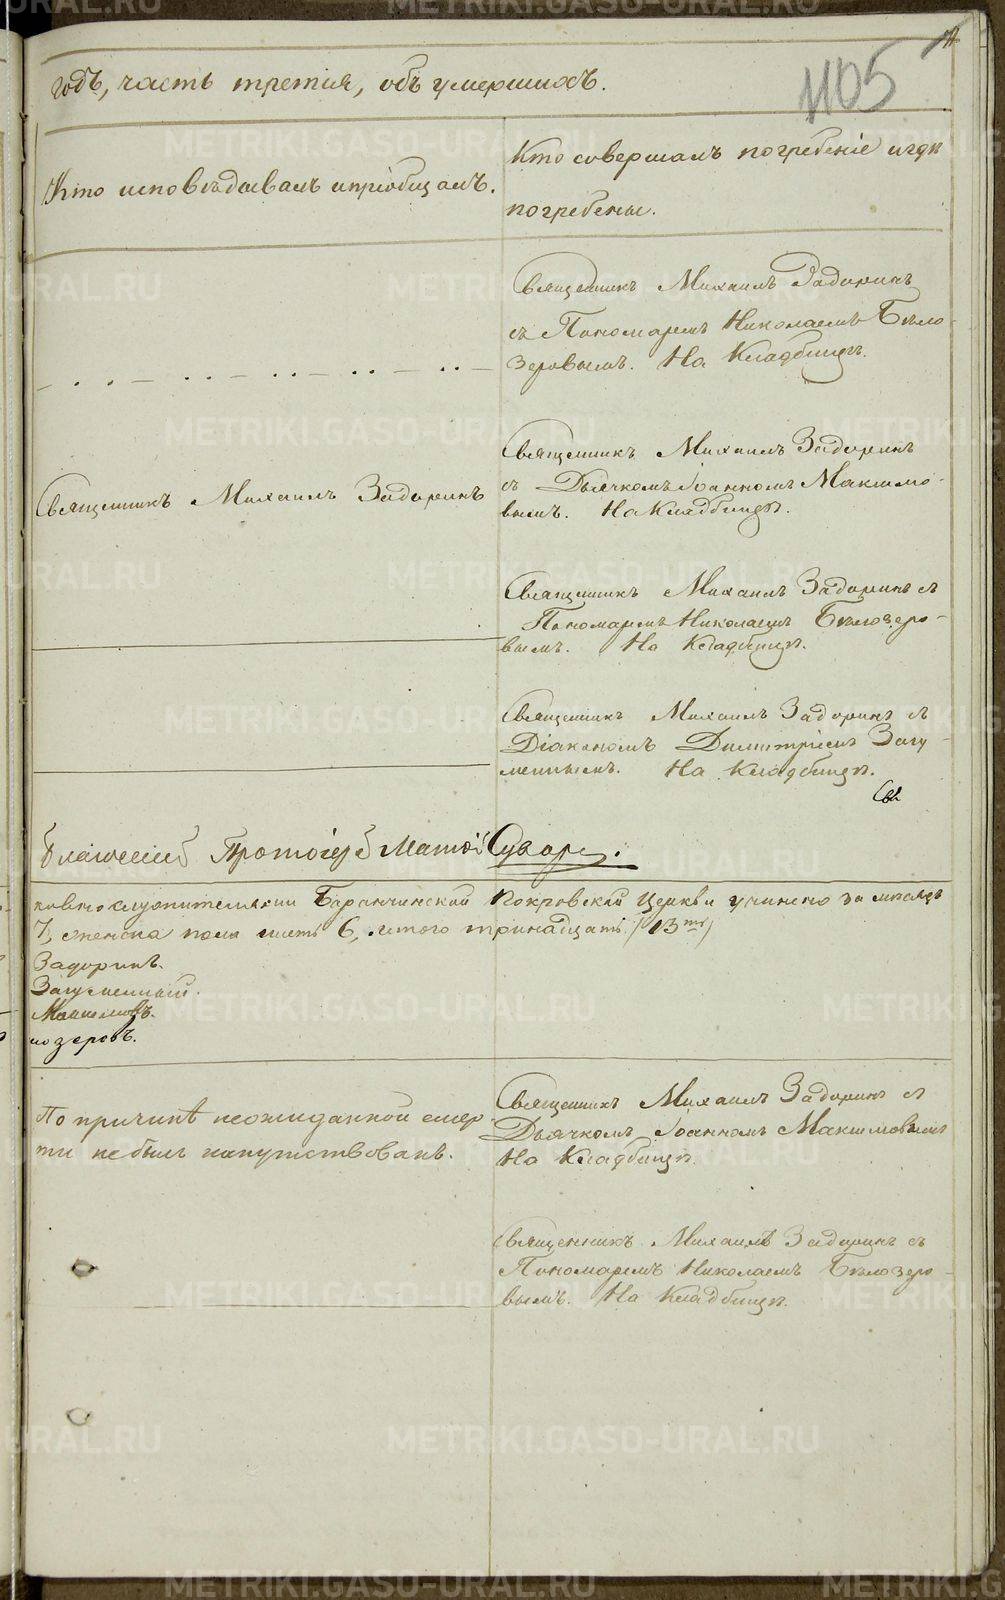 годъ, часть третія, объ умершихъ.
1105
Кто исповѣдывалъ и пріобщалъ.
Кто совершалъ погребеніе и гдѣ
погребены.
Священникъ Михаилъ Задоринъ
съ Пономаремъ Николаемъ Бѣло-
зеровымъ. На Кладбищѣ.
Священникъ Михаилъ Задоринъ
Священникъ Михаилъ Задоринъ
съ Дьячкомъ Іоанномъ Максимо-
вымъ. На Кладбищѣ.
Священникъ Михаилъ Задоринъ съ
Пономаремъ Николаемъ Бѣлозеро-
вымъ. На Кладбищѣ.
Священникъ Михаилъ Задоринъ съ
Діакономъ Димитріемъ Загу-
меннымъ. На Кладбищѣ.
Протоіерей
ковнослужителями Баранчинской Покровской Церкви учинено за мѣсяцъ
7, женска пола шесть 6, итого тринадцать (13ть)
Задоринъ.
Загуменный.
Максимовъ.
лозеровъ.
По причинѣ неожиданной смер-
ти не былъ напутствованъ.
Священникъ Михаилъ Задоринъ съ
Дьячкомъ Іоанномъ Максимовымъ
На Кладбищѣ.
Священникъ Михаилъ Задоринъ съ
Пономаремъ Николаемъ Бѣлозеро-
вымъ. На Кладбищѣ.
METRIKI.GASO-URAL.RU